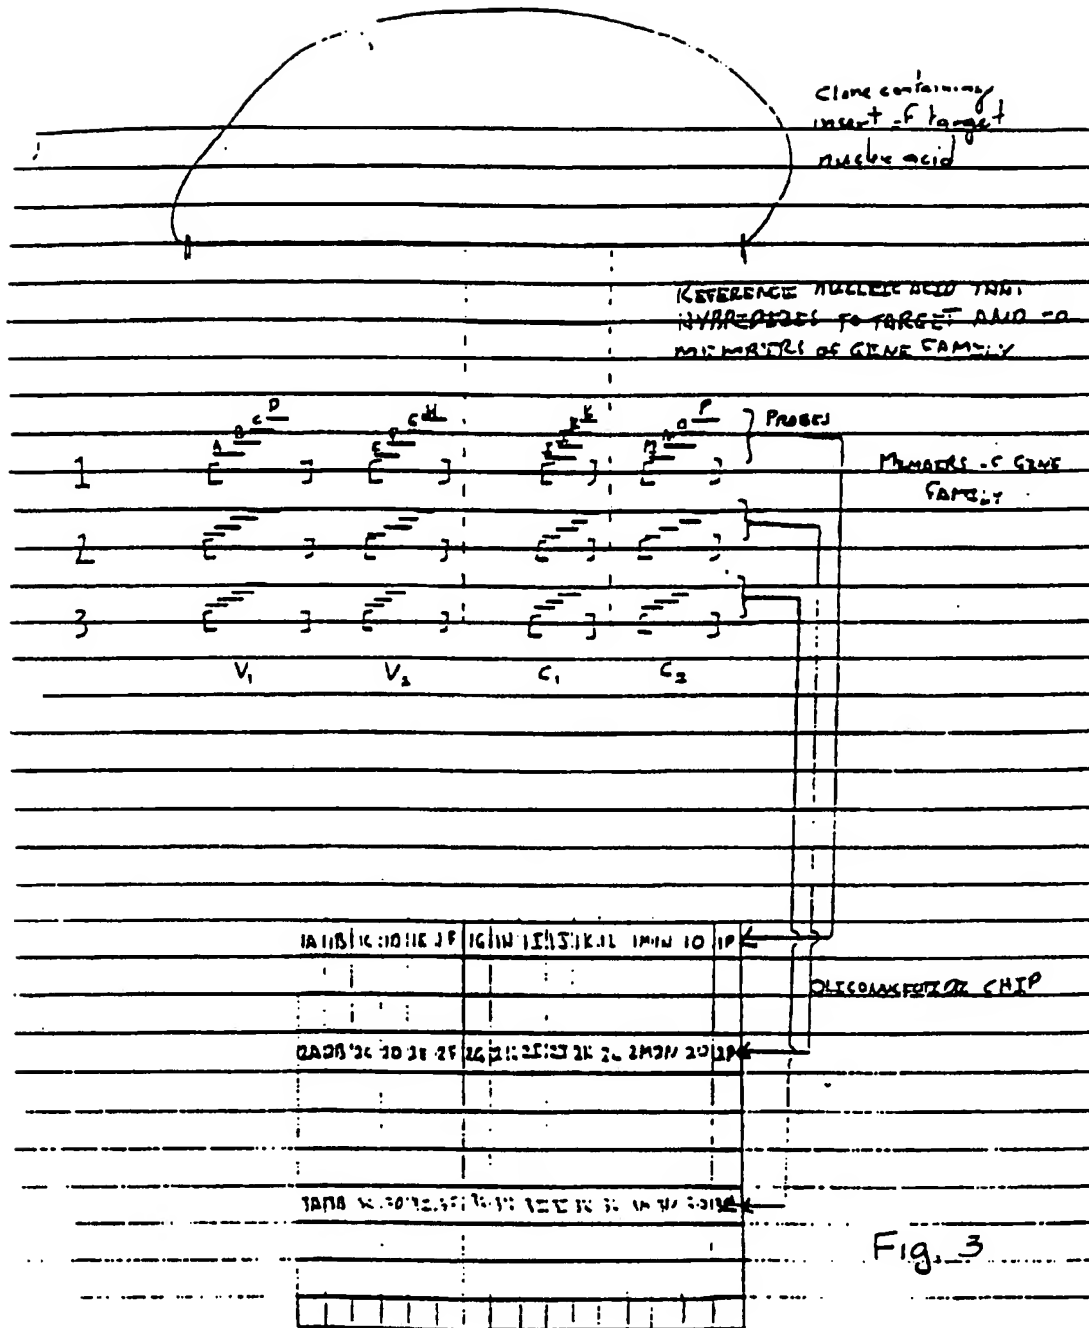 Clone containing
insert of target
nucleic acid
REFERENCE NUCLEIC ACID THAT
HYBRIDIZES TO TARGET AND TO
MEMBERS OF GENE FAMILY
D
C
B
A
H
G
F
E
K
J
I
P
O
N
M
PROBES
1
MEMBERS OF GENE
FAMILY
2
3
V₁ V₂ C₁ C₂
1A 1B 1C 1D 1E 1F 1G 1H 1I 1J 1K 1L 1M 1N 1O 1P
OLIGONUCLEOTIDE CHIP
2A 2B 2C 2D 2E 2F 2G 2H 2I 2J 2K 2L 2M 2N 2O 2P
3A 3B 3C 3D 3E 3F
Fig. 3